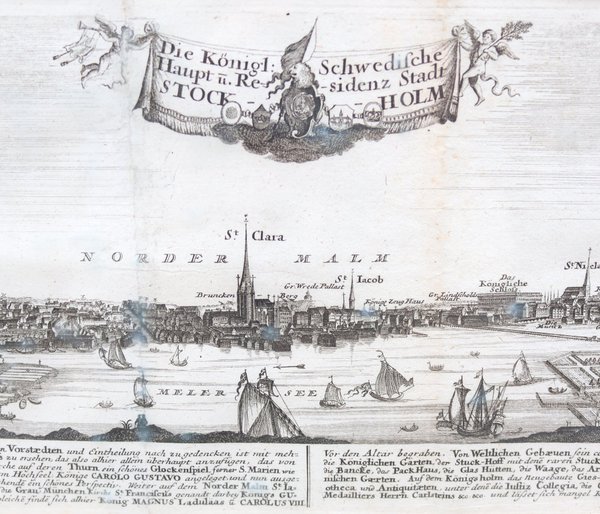 Die Königl: Schwedische
Haupt ũ. Re- sidenz Stadt
STOCK- HOLM
St Clara
NORDER MALM
St Iacob
St Nicla
Gr. Wrede Pallast
Bruncken Berg
Königl Zeug Haus
Gr. Lindschölds Pallast
Das Königliche Schloss
MELER SEE
n Vorstædten und Eintheilung nach zugedencken ist mit meh-
s zu ersehen, das also alhier allein überhaupt anzufügen, das von
rche auf deren Thurn ein schönes Glockenspiel, ferner S. Marien wie
em Höchseel Könige CAROLO GUSTAVO angeleget und nun ausge-
hende ein schönes Perspectiv. Weiter auf dem Norder Malm St Ia-
die Grau München Kirche St Franciscus genandt darbey Königs GU-
gleiche finde sich alhier König MAGNUS Ladulaas ũ CAROLUS VIII
Vor den Altar begraben. Von Weltlichen Gebæuen sein
die Königlichen Garten, der Stuck-Hoff mit denē raren Stuck
die Bancke, das Pack Haus, die Glas Hutten, die Waage, das Ar
nilichen Gærten. Auf dem Königsholm das Neugebaute Gies-
otheca und Antiquitæten, unter denē die Iustiz Collegia, die C
Medailliers Herrn Carlsteins &c &c. und læsset sich mangel